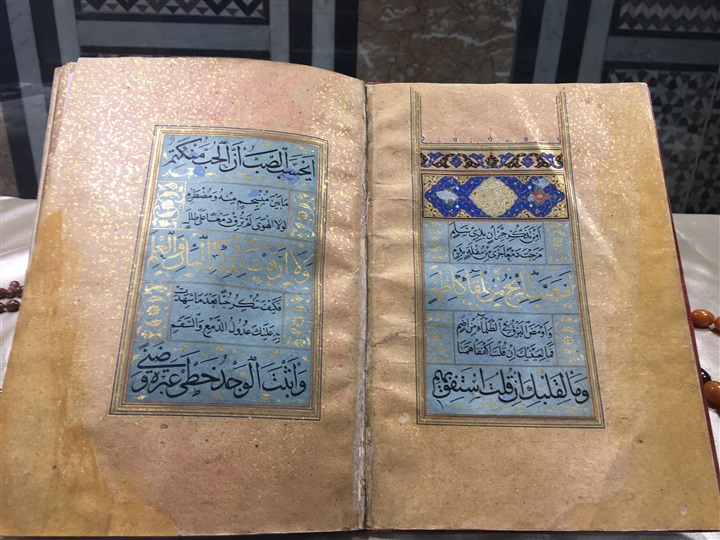 أمن تذكر جيران بذي سلم
مزجت دمعا جرى من مقلة بدم
أم هبت الريح من تلقاء كاظمة
وأومض البرق في الظلماء من إضم
فما لعينيك إن قلت اكففا همتا
وما لقلبك إن قلت استفق يهم
أيحسب الصب أن الحب منكتم
ما بين منسجم منه ومضطرم
لولا الهوى لم ترق دمعا على طلل
ولا أرقت لذكر البان والعلم
فكيف تنكر حبا بعد ما شهدت
به عليك عدول الدمع والسقم
وأثبت الوجد خطي عبرة وضنى